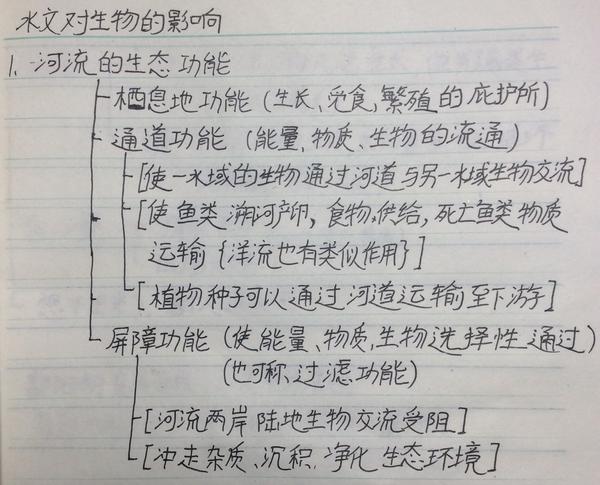 水文对生物的影响
1. 河流的生态功能
栖息地功能(生长、觅食、繁殖的庇护所)
通道功能(能量、物质、生物的流通)
[使一水域的生物通过河道与另一水域生物交流]
[使鱼类溯河产卵,食物供给,死亡鱼类物质
运输{洋流也有类似作用}]
[植物种子可以通过河道运输至下游]
屏障功能(使能量、物质,生物选择性通过)
(也可称、过滤功能)
[河流两岸陆地生物交流受阻]
[冲走杂质、沉积、净化生态环境]